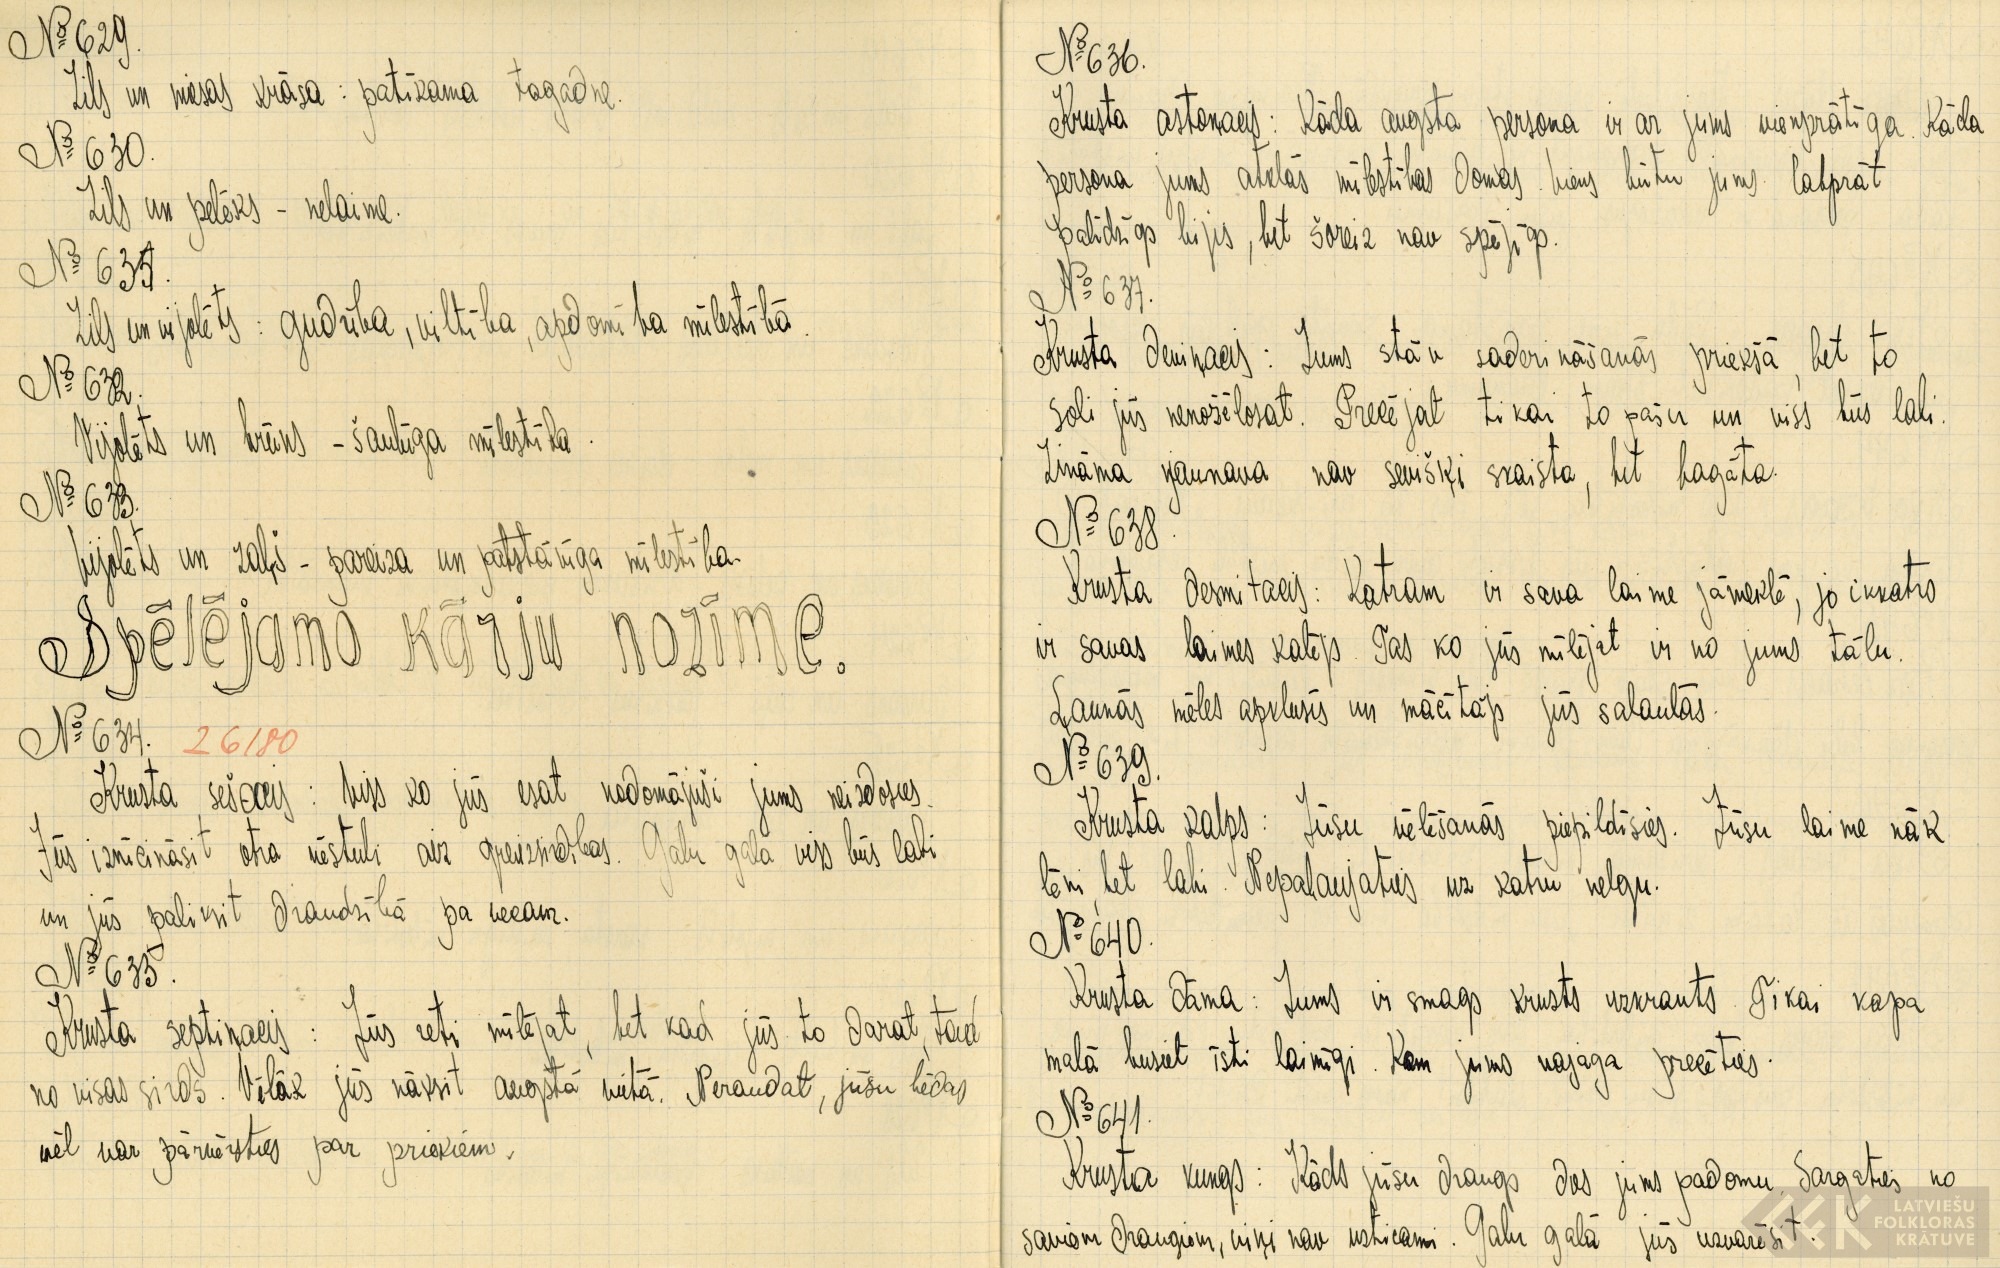 № 629.
Zils un miesas krāsa : patīkama tagadne.
№ 630.
Zils un pelēks - nelaime.
№ 631.
Zils un vijolēts : gudrība, viltība, apdomība mīlestībā.
№ 632.
Vijolēts un brūns - šaubīga mīlestība.
№ 633.
Vijolēts un zaļš - pareiza un patstāvīga mīlestība.
Spēlējamo kāršu nozīme.
№ 634. 26180
Krusta sešacis : Viss ko jūs esat nodomājuši jums neizdosies.
Jūs iznīcināsit otra vēstuli aiz greizsirdības. Galu gala viss būs labi
un jūs paliksit draudzībā pa vecam.
№ 635.
Krusta septiņacis : Jūs reti mīlējat, bet kad jūs to darat, tad
no visas sirds. Vēlāk jūs nāksit augstā vietā. Neraudat, jūsu bēdas
vēl var pārvērsties par priekiem.
№ 636.
Krusta astoņacis : Kāda augsta persona ir ar jums vienprātīga. Kāda
persona jums atklās mīlestības domas. Viens būtu jums labprāt
palīdzīgs bijis, bet šoreiz nav spējīgs.
№ 637.
Krusta deviņacis : Jums stāv saderināšanās priekšā, bet to
soli jūs nenožēlosat. Precējat tikai to pašu un viss būs labi.
Zināma jaunava nav sevišķi skaista, bet bagāta.
№ 638.
Krusta desmitacis : Katram ir sava laime jāmeklē, jo ikkatrs
ir savas laimes kalējs. Tas ko jūs mīlējat ir no jums tālu.
Ļaunās mēles apklusīs un mācītājs jūs salaulās.
№ 639.
Krusta kalps : Jūsu vēlēšanās piepildīsies. Jūsu laime nāk
lēni, bet labi. Nepaļaujaties uz katru nelgu.
№ 640.
Krusta dāma : Jums ir smags krusts uzkrauts. Tikai kapa
malā busiet īsti laimīgi. Kam jums vajaga precēties.
№ 641.
Krusta kungs : Kāds jūsu draugs dos jums padomu. Sargaties no
saviem draugiem, viņi nav usticami. Galu galā jūs uzvarēsit.
LATVIEŠU
FOLKLORAS
KRĀTUVE